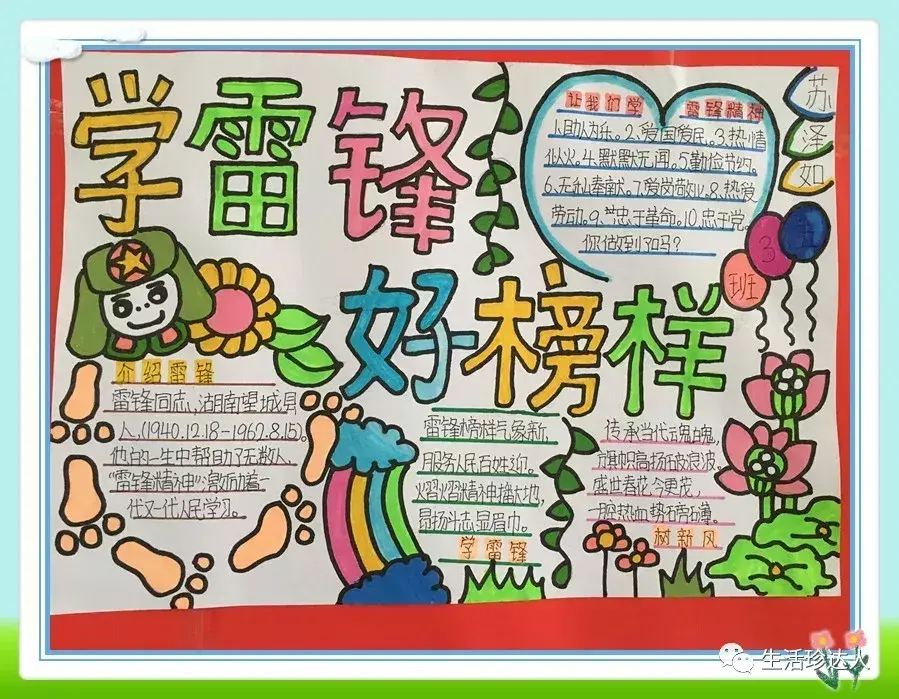 学雷锋
好榜样
苏泽如
3班
让我们学 雷锋精神
人助人为乐。2.爱国爱民。3.热情
似火。4.默默无闻。5勤俭节约。
6.无私奉献。7.爱岗敬业。8.热爱
劳动。9.忠于革命。10.忠于党。
你做到了吗？
介绍雷锋
雷锋同志，湖南望城县
人，(1940.12.18-1962.8.15)。
他的一生中帮助了无数人
“雷锋精神”激励着一
代又一代人民学习。
雷锋榜样气象新，
服务人民百姓迎。
熠熠精神播大地，
昂扬斗志显眉巾。
学雷锋
传承当代魂，
旗帜高扬破浪波。
盛世春花今更茂，
一腔热血
树新风
生活珍达人